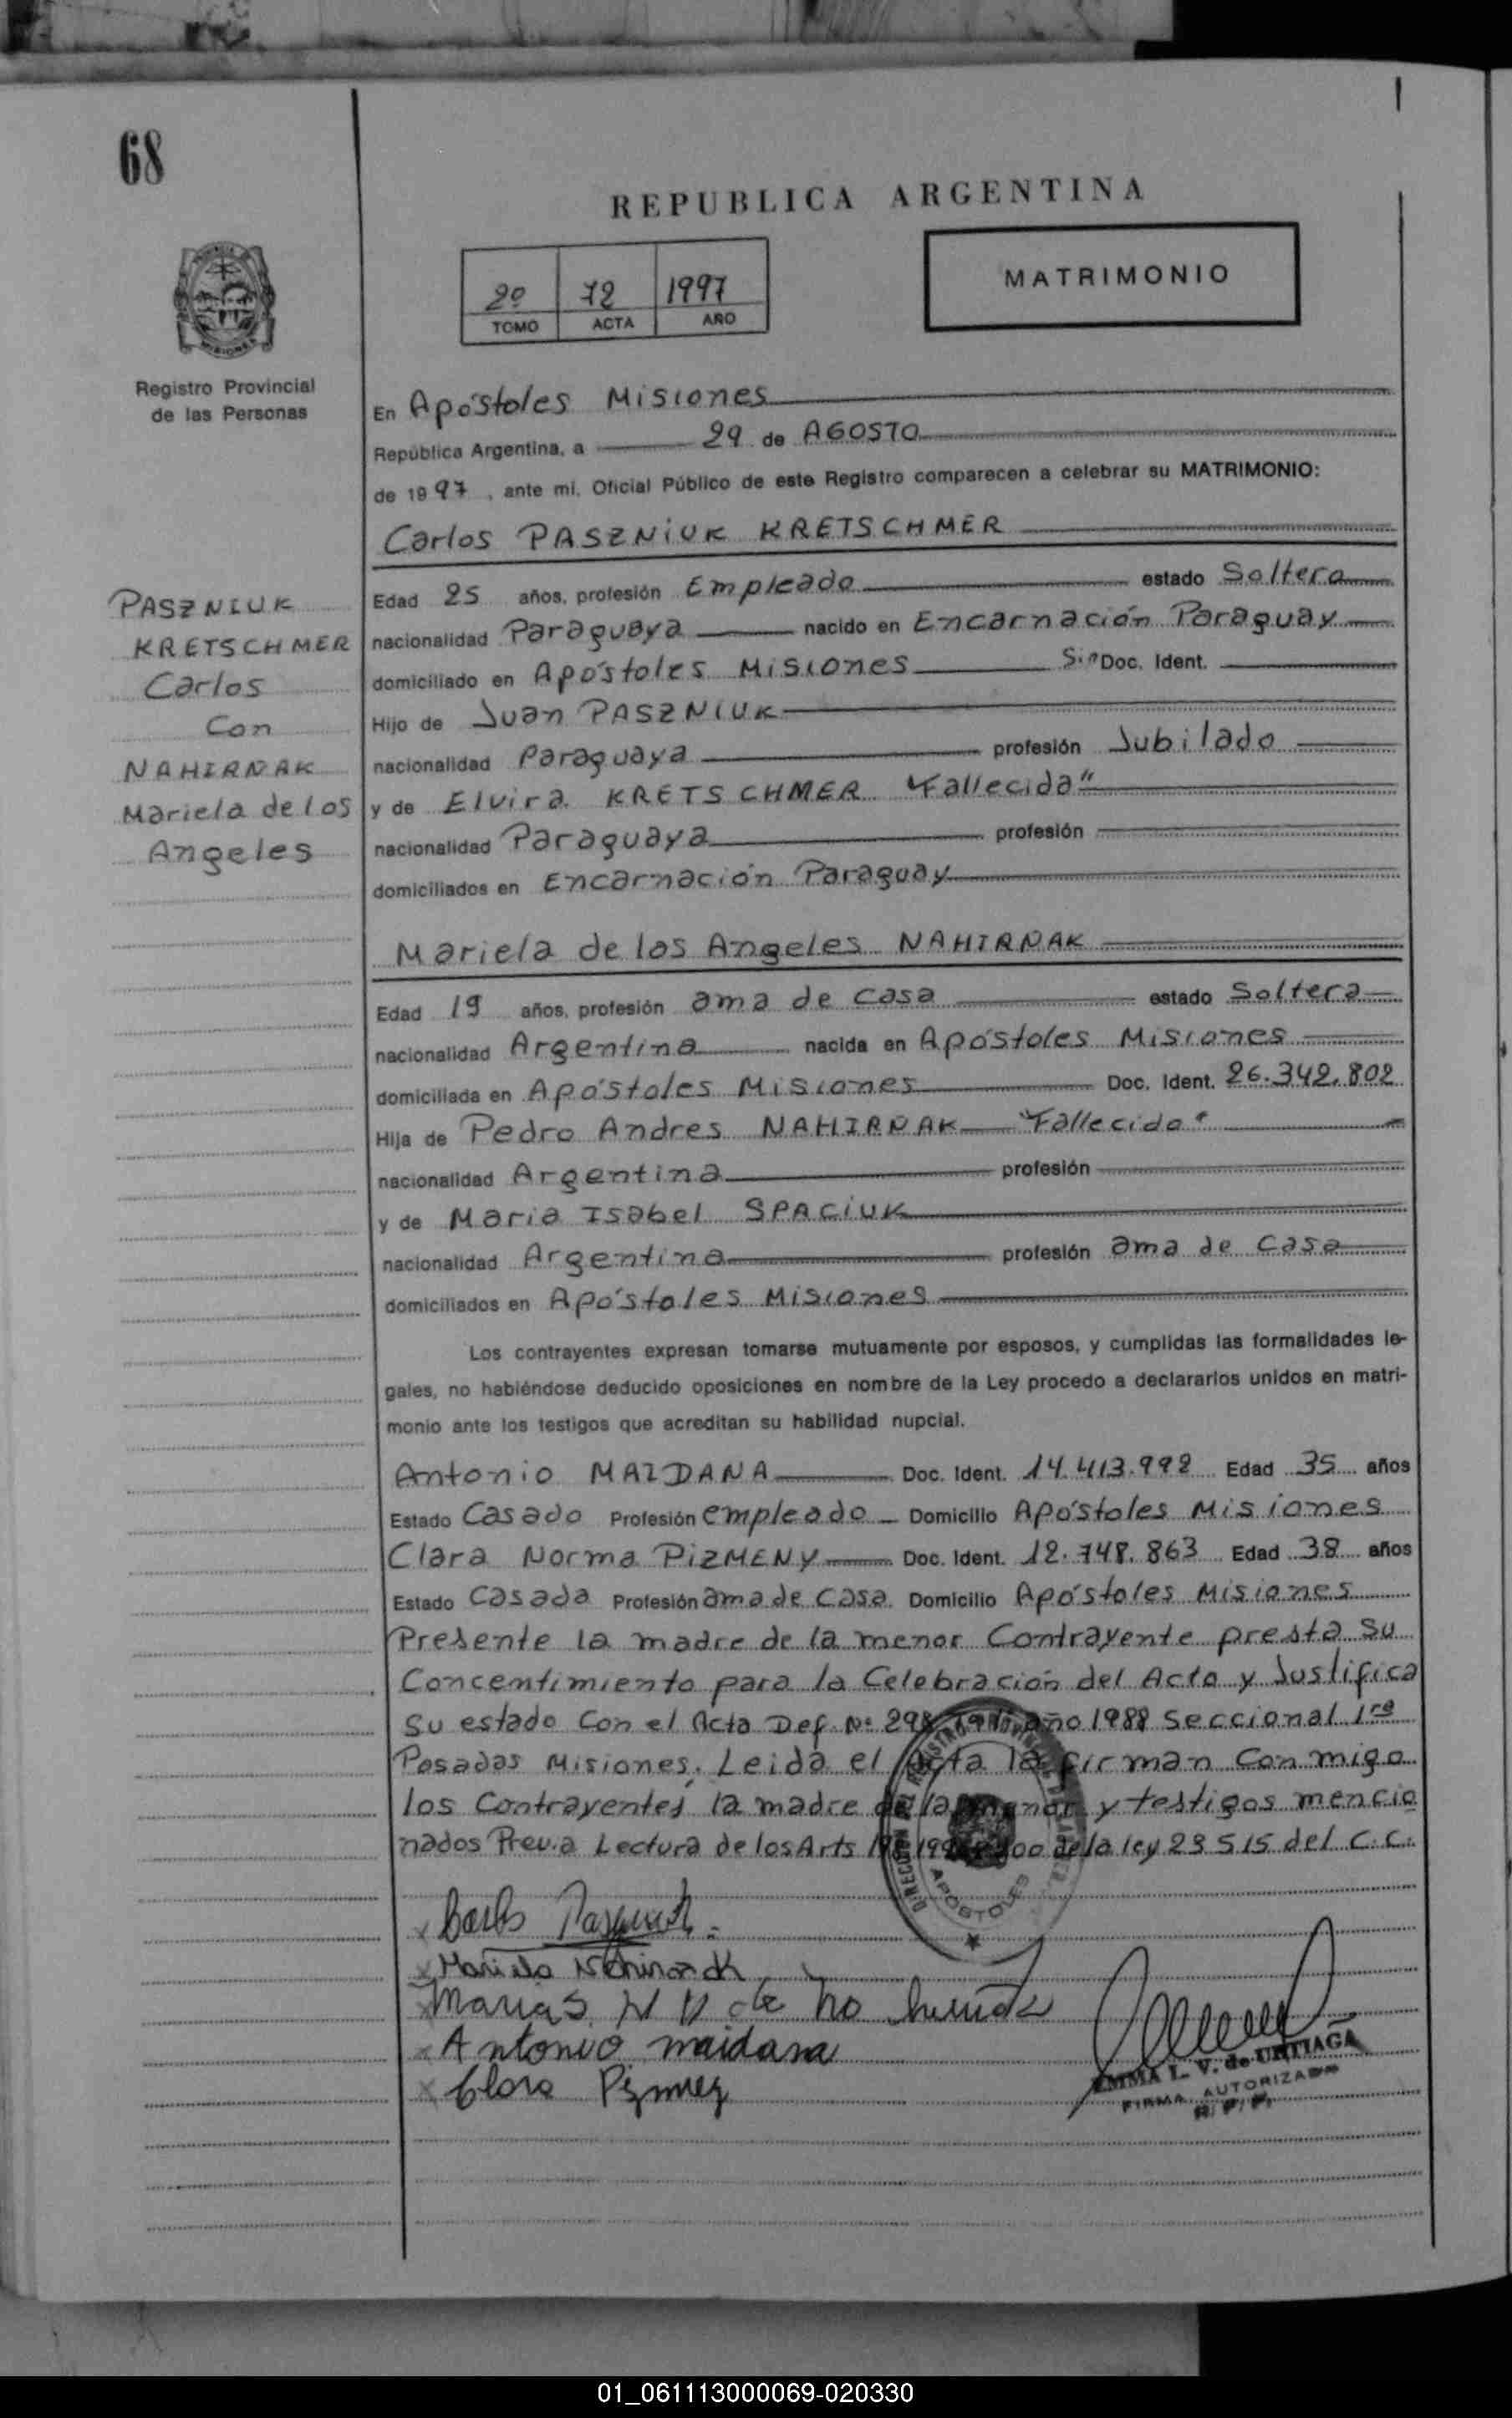 68
REPUBLICA ARGENTINA
2º 72 1997
TOMO ACTA AÑO
MATRIMONIO
Registro Provincial
de las Personas
PASZNIUK
KRETSCHMER
Carlos
Con
NAHIRNAK
Mariela de los
Angeles
En Apóstoles Misiones
República Argentina, a 29 de AGOSTO
de 1997, ante mi, Oficial Público de este Registro comparecen a celebrar su MATRIMONIO:
Carlos PASZNIUK KRETSCHMER
Edad 25 años, profesión Empleado estado Soltero
nacionalidad Paraguaya nacido en Encarnación Paraguay
domiciliado en Apóstoles Misiones Sin Doc. Ident.
Hijo de Juan PASZNIUK
nacionalidad Paraguaya profesión Jubilado
y de Elvira KRETSCHMER "Fallecida"
nacionalidad Paraguaya profesión
domiciliados en Encarnación Paraguay
Mariela de los Angeles NAHIRNAK
Edad 19 años, profesión ama de casa estado Soltera
nacionalidad Argentina nacida en Apóstoles Misiones
domiciliada en Apóstoles Misiones Doc. Ident. 26.342.802
Hija de Pedro Andres NAHIRNAK "Fallecido"
nacionalidad Argentina profesión
y de Maria Isabel SPACIUK
nacionalidad Argentina profesión ama de casa
domiciliados en Apóstoles Misiones
Los contrayentes expresan tomarse mutuamente por esposos, y cumplidas las formalidades le-
gales, no habiéndose deducido oposiciones en nombre de la Ley procedo a declararlos unidos en matri-
monio ante los testigos que acreditan su habilidad nupcial.
Antonio MAIDANA Doc. Ident. 14.413.992 Edad 35 años
Estado Casado Profesión empleado Domicilio Apóstoles Misiones
Clara Norma PIZMENY Doc. Ident. 12.748.863 Edad 38 años
Estado Casada Profesión ama de casa Domicilio Apóstoles Misiones
Presente la madre de la menor Contrayente presta su
Concentimiento para la Celebración del Acto y Justifica
su estado Con el Acta Def. Nº año 1988 Seccional 1ra
Posadas Misiones. Leida el Acta la firman Conmigo
los Contrayentes la madre de la menor y testigos mencio
nados Previa Lectura de los Arts de la ley 23515 del C.C.
DIRECCION APOSTOLES
Carlos
Mariela
Maria S. de
Antonio maidana
Clara
EMMA L. V. de URTIAGA
FIRMA AUTORIZADA
01_061113000069-020330